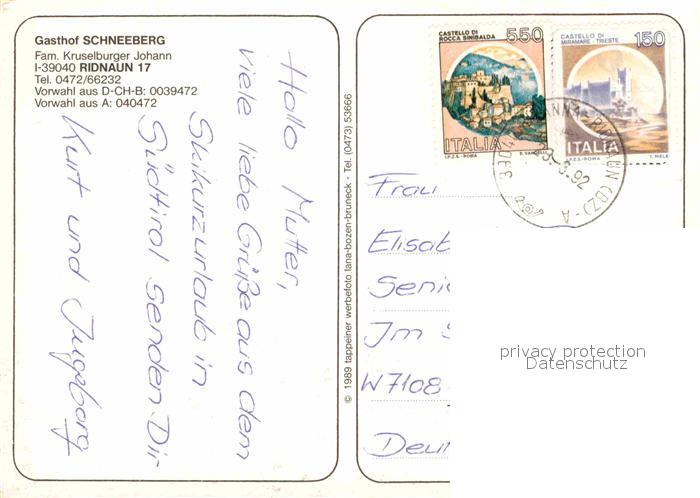 Gasthof SCHNEEBERG
Fam. Kruselburger Johann
I-39040 RIDNAUN 17
Tel. 0472/66232
Vorwahl aus D-CH-B: 0039472
Vorwahl aus A: 040472
Hallo Mutter,
viele liebe Grüße aus dem
Skikurzurlaub in
Südtirol senden Dir
Kurt und Ingeborg
© 1989 tappeiner werbefoto lana-bozen-bruneck · Tel. (0473) 53666
CASTELLO DI
ROCCA SINIBALDA
550
ITALIA
I.P.Z.S. - ROMA
CASTELLO DI
MIRAMARE - TRIESTE
150
ITALIA
I.P.Z.S. - ROMA
T. MELE
3.92
(BZ) - A
Frau
Elisab
Seni
Im S
W7108
Deu
privacy protection
Datenschutz